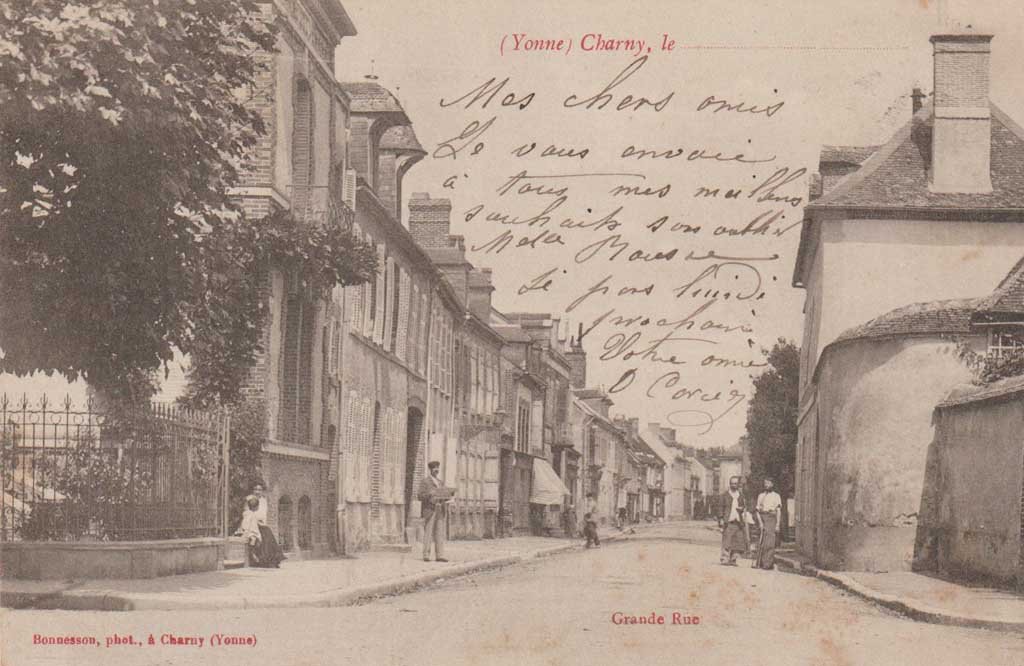 (Yonne) Charny, le
Mes chers amis
Je vous envoie
à tous mes meilleurs
souhaits sans oublier
Melle
Je pars lundi
prochain
Votre amie
Grande Rue
Bonnesson, phot., à Charny (Yonne)